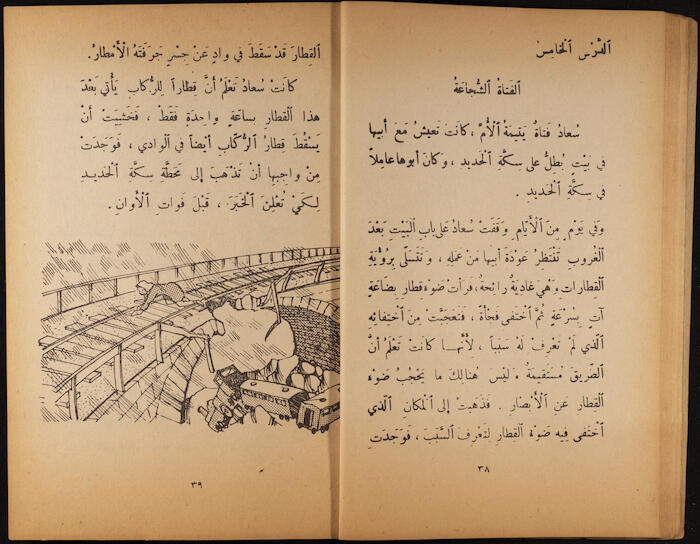 الدَّرس الخامِسُ
الفَتاةُ الشُّجاعَةُ
سُعادُ فَتاةٌ يَتيمَةُ الأُمِّ، كانَت تَعيشُ مَعَ أبيها
في بَيْتٍ يُطِلُّ على سِكَّةِ الحَديدِ، وَكانَ أبوها عامِلاً
في سِكَّةِ الحَديدِ .
وَفي يَوْمٍ مِنَ الأيّامِ وَقَفَتْ سُعادُ على بابِ البَيْتِ بَعْدَ
الغُروبِ تَنْتَظِرُ عَوْدَةَ أبيها مِنْ عَمَلِهِ ، وَتَتَسَلَّى بِرُؤْيَةِ
القِطاراتِ وَهِيَ غادِيَةٌ رائِحَةٌ، فَرَأتْ ضَوْءَ قِطارِ بِضاعَةٍ
آتٍ بِسُرْعَةٍ ثُمَّ اخْتَفى فَجْأةً ، فَتَعَجَّبَتْ مِنْ اخْتِفائِهِ
الَّذي لَمْ تَعْرِفْ لَهُ سَبَباً ، لأنَّها كانَتْ تَعْلَمُ أنَّ
الطَّريقَ مُسْتَقيمَةٌ وَلَيْسَ هُنالِكَ ما يَحْجُبُ ضَوْءَ
القِطارِ عَنِ الأبْصارِ . فَذَهَبَتْ إلى المَكانِ الَّذي
اخْتَفى فيهِ ضَوْءُ القِطارِ لِتَعْرِفَ السَّبَبَ ، فَوَجَدَتِ
٣٨
القِطارَ قَدْ سَقَطَ في وادٍ عَنْ جِسْرٍ جَرَفَتْهُ الأمْطارُ.
كانَتْ سُعادُ تَعْلَمُ أنَّ قِطاراً لِلرُّكّابِ يَأْتي بَعْدَ
هذا القِطارِ بِساعَةٍ واحِدَةٍ فَقَطْ ، فَخَشِيَتْ أنْ
يَسْقُطَ قِطارُ الرُّكّابِ أيْضاً في الوادي ، فَوَجَدَتْ
مِنْ واجِبِها أنْ تَذْهَبَ إلى مَحَطَّةِ سِكَّةِ الحَديدِ
لِكَيْ تُعْلِنَ الخَبَرَ ، قَبْلَ فَواتِ الأوانِ.
٣٩